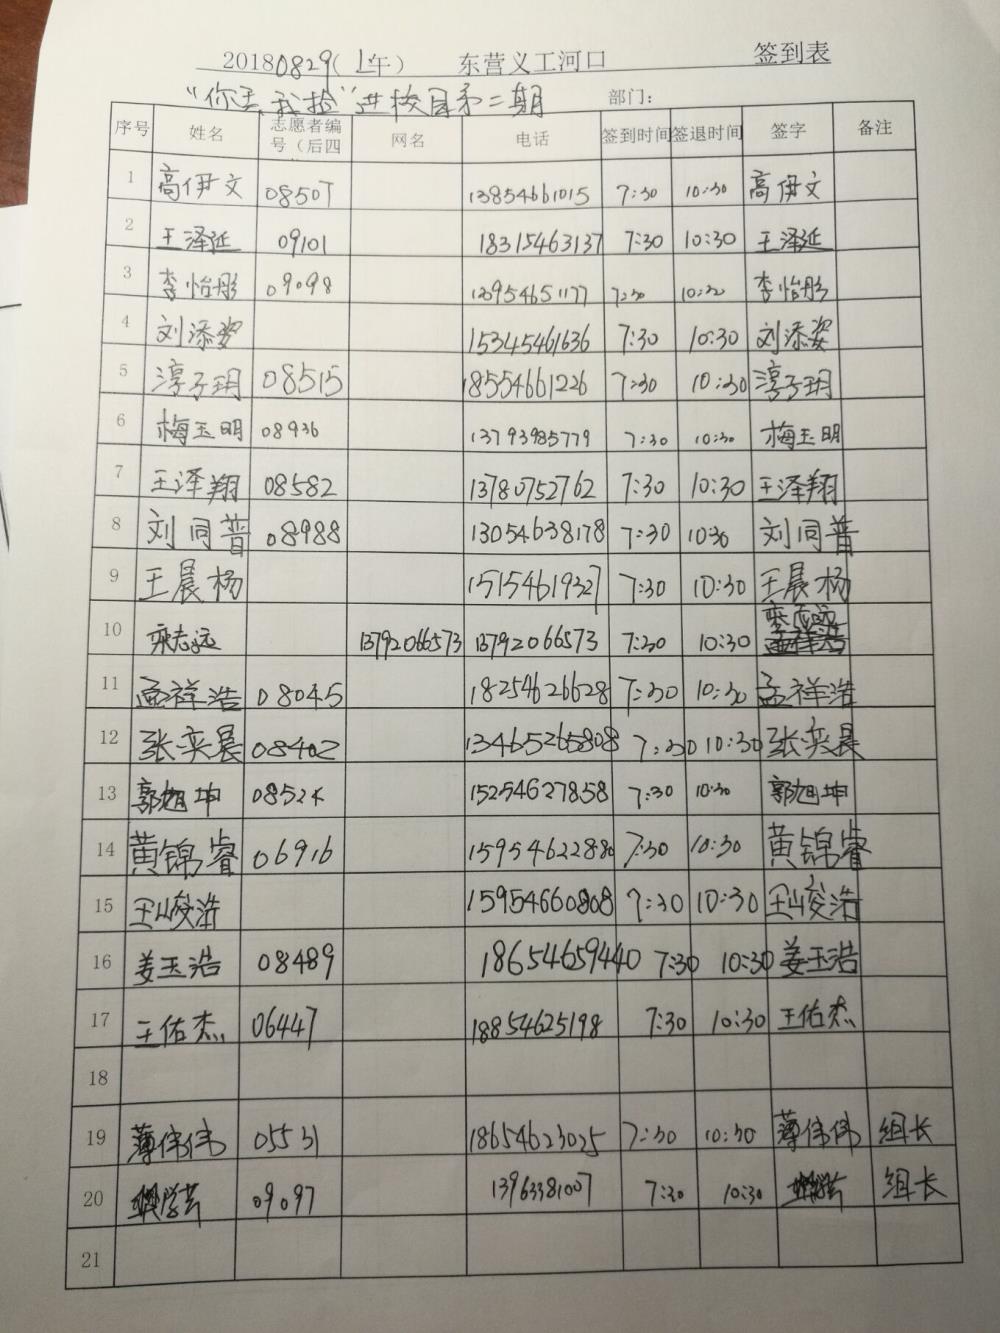 20180829(上午) 东营义工河口 签到表
"你丢我捡"进校园第二期 部门:
序号 姓名 志愿者编号（后四 网名 电话 签到时间 签退时间 签字 备注
1 高伊文 08507 13854661015 7:30 10:30 高伊文
2 王泽延 09101 18315463137 7:30 10:30 王泽延
3 李怡彤 09098 13954651177 7:30 10:30 李怡彤
4 刘添姿 15345461636 7:30 10:30 刘添姿
5 淳子玥 08515 18554661226 7:30 10:30 淳子玥
6 梅玉明 08936 13793985779 7:30 10:30 梅玉明
7 王泽翔 08582 13780752762 7:30 10:30 王泽翔
8 刘同普 08988 13054638178 7:30 10:30 刘同普
9 王晨杨 15154619327 7:30 10:30 王晨杨
10 栾志远 13792066573 13792066573 7:30 10:30 栾志远
11 孟祥浩 08045 18254626628 7:30 10:30 孟祥浩
12 张奕晨 08402 13465265808 7:30 10:30 张奕晨
13 郭旭坤 0852 15254627858 7:30 10:30 郭旭坤
14 黄锦睿 06916 15954622880 7:30 10:30 黄锦睿
15 王峻浩 15954660808 7:30 10:30 王峻浩
16 姜玉浩 08489 18654659440 7:30 10:30 姜玉浩
17 王佑杰 06447 18854625198 7:30 10:30 王佑杰
18
19 薄伟伟 05531 18654623025 7:30 10:30 薄伟伟 组长
20 09097 13963381007 7:30 10:30 组长
21